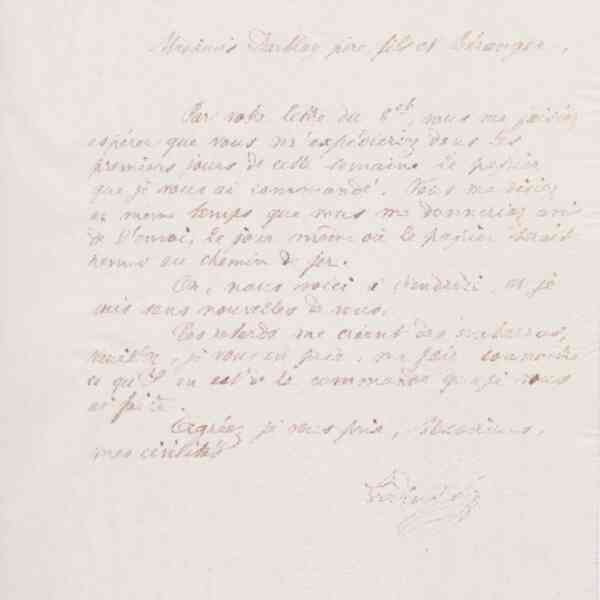 Messieurs Darblay père, fils et Béranger,
Par votre lettre du 8 ct, vous me faisiez
espérer que vous m'expédieriez dans les
premiers jours de cette semaine le papier
que je vous ai commandé. Vous me disiez
en même temps que vous me donneriez avis
de l'envoi, le jour même où le papier serait
remis au chemin de fer.
Or, nous voici à vendredi, et je
suis sans nouvelles de vous.
Ces retards me créent des embarras,
veuillez, je vous en prie, me faire connaître
ce qu'il en est de la commande que je vous
ai faite.
Agréez, je vous prie, Messieurs,
mes civilités